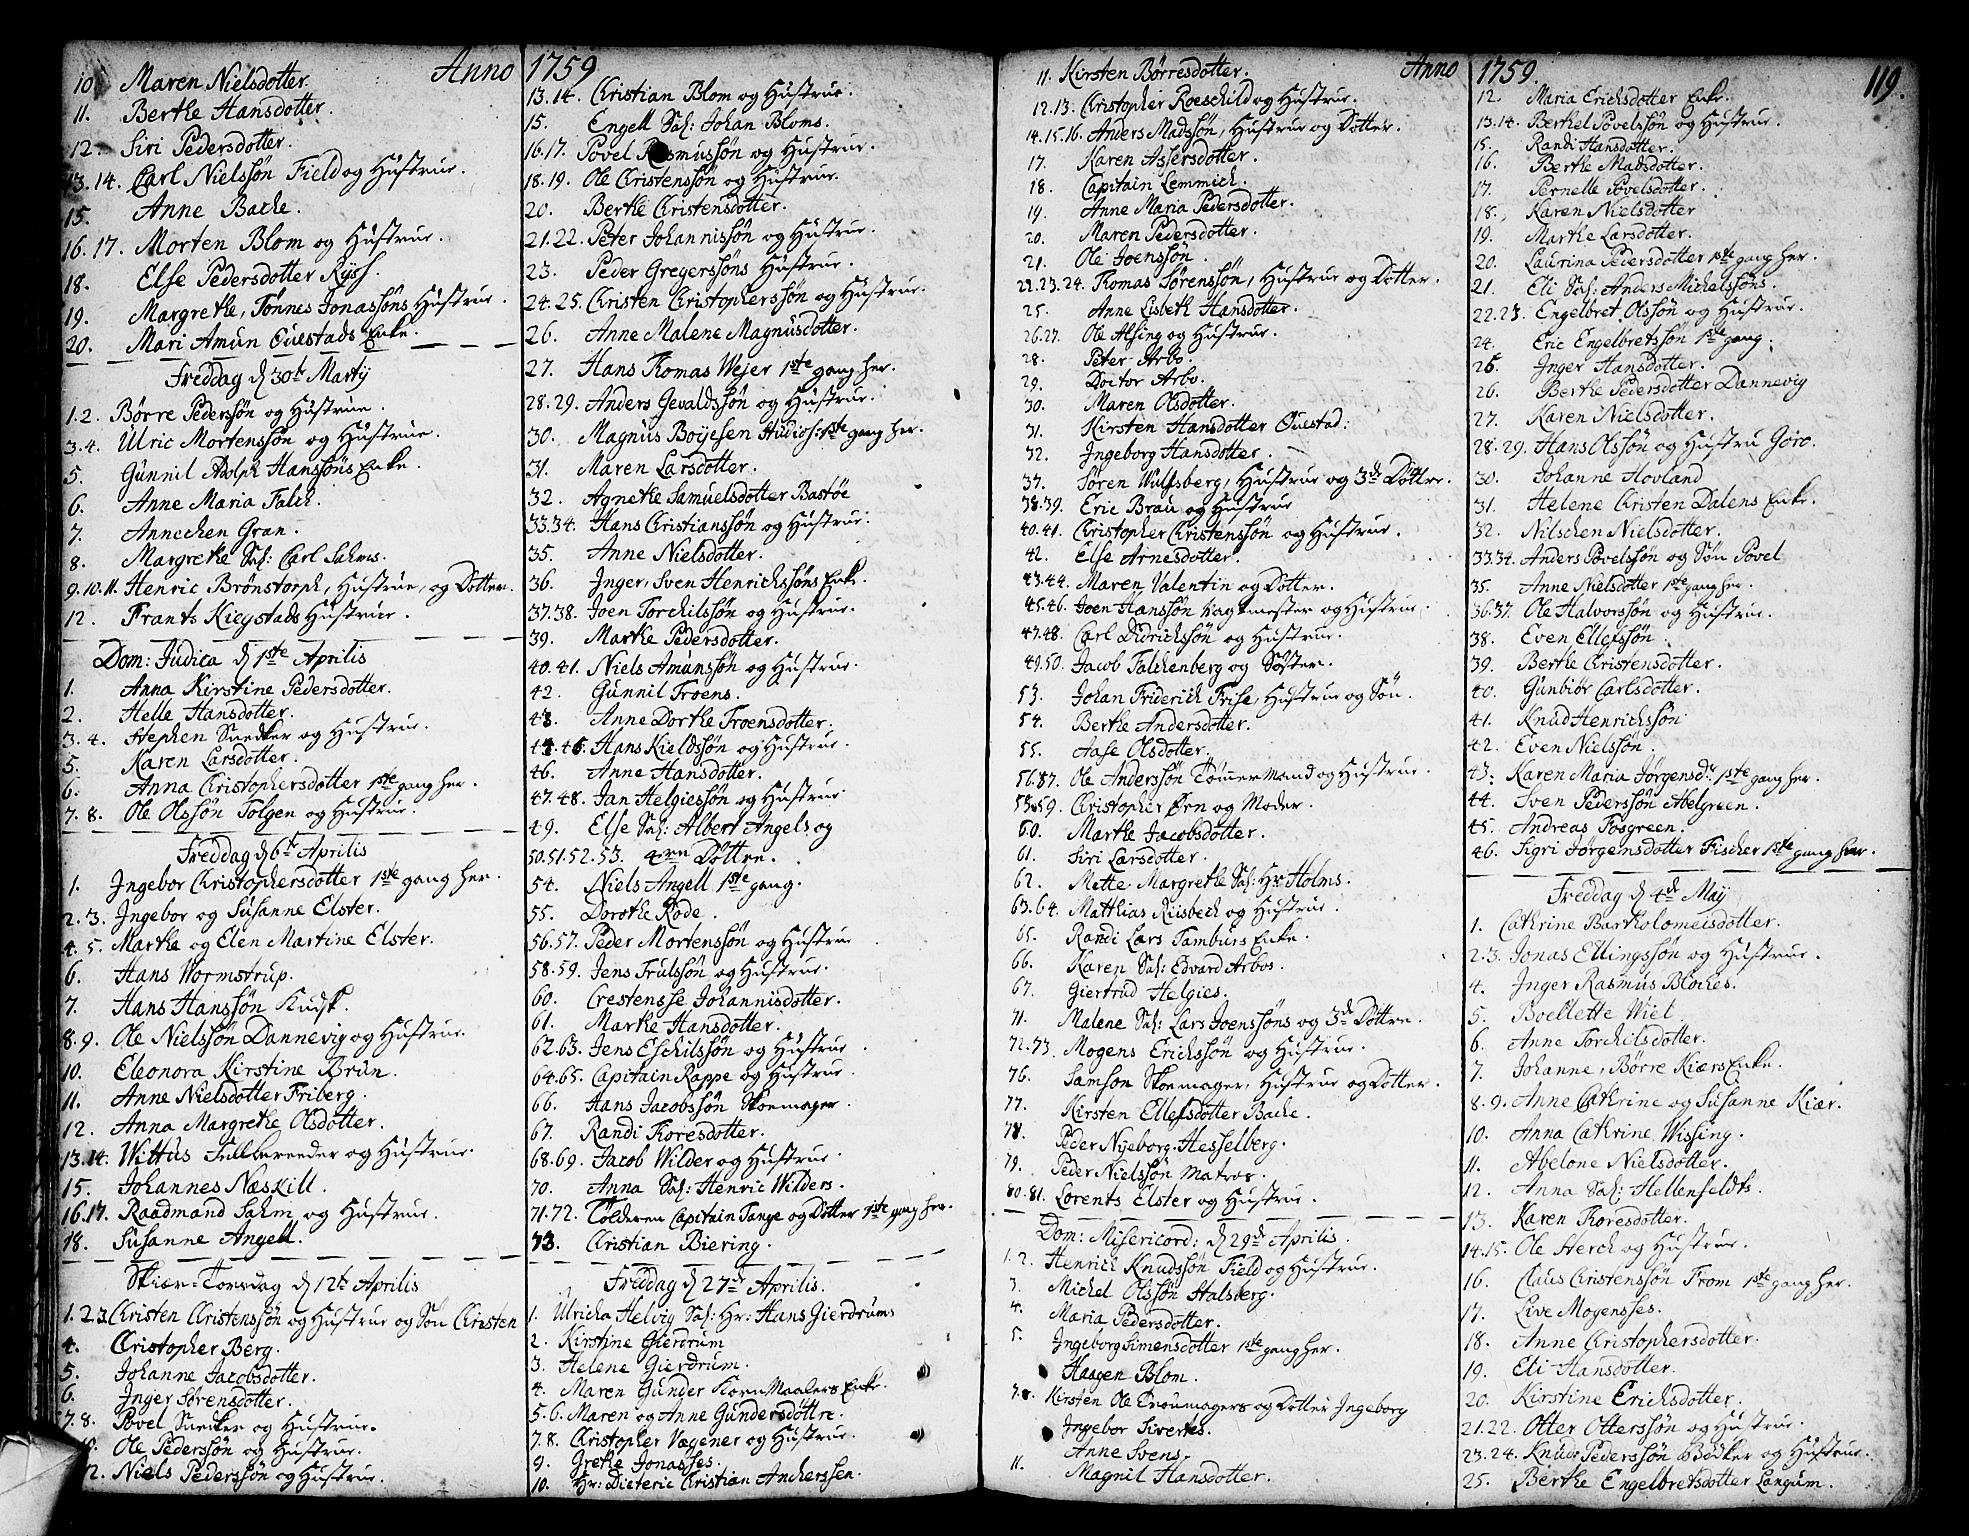 Anno 1759
10 Maren Nielsdotter.
11. Berthe Hansdotter.
12. Siri Pedersdotter.
13.14. Carl Nielssøn Field og Hustrue.
15. Anne Bache.
16.17. Morten Blom og Hustrue.
18. Else Pedersdotter Ryss.
19. Margrethe, Tønnes Jonassøns Hustrue.
20. Mari Amun Ouestads Enke.
Freddag d 30te Martij
1.2. Børre Pederssøn og Hustrue.
3.4. Ulric Mortenssøn og Hustrue.
5. Gunnil Adolph Hanssøns Enke.
6. Anne Maria Falch.
7. Annechen Gran.
8. Margrethe Sal: Carl Sahms.
9.10.11. Henric Brønstorph, Hustrue, og Dotter.
12. Frants Kiegstads Hustrue.
Dom: Judica d 1ste Aprilis
1. Anna Kirstine Pedersdotter.
2. Helle Hansdotter.
3.4. Stephen Snedker og Hustrue.
5. Karen Larsdotter.
6. Anna Christophersdotter 1ste gang her.
7.8. Ole Olssøn Folgen og Hustrue.
Freddag d 6te Aprilis
1. Ingebor Christophersdotter 1ste gang her.
2.3. Ingebor og Susanne Elster.
4.5. Marthe og Elen Martine Elster.
6. Hans Wormstrup.
7. Hans Hanssøn Kudsk.
8.9. Ole Nielssøn Dannevig og Hustrue.
10. Eleonora Kirstine Brun.
11. Anne Nielsdotter Friberg.
12. Anna Margrethe Olsdotter.
13.14. Wittus Fellbereeder og Hustrue.
15. Johannes Næskill.
16.17. Raadmand Sahm og Hustrue.
18. Susanne Angell.
Skiær-Torsdag d 12te Aprilis
1.2.3. Christen Christenssøn og Hustrue og Søn Christen
4. Christopher Berg.
5. Johanne Jacobsdotter.
6. Inger Sørensdotter.
7.8. Povel Snedker og Hustrue.
Ole Pederssøn og Hustrue.
Niels Pederssøn og Hustrue.
13.14. Christian Blom og Hustrue.
15. Engell Sal: Johan Bloms.
16.17. Povel Rasmussøn og Hustrue.
18.19. Ole Christenssøn og Hustrue.
20. Berthe Christensdotter.
21.22. Peter Johannissøn og Hustrue.
23. Peder Gregerssøns Hustrue.
24.25. Christen Christopherssøn og Hustrue.
26. Anne Malene Magnusdotter.
27. Hans Thomas Wejer 1ste gang her.
28.29. Anders Gevaldssøn og Hustrue.
30. Magnus Boijesen Studios: 1ste gang her.
31. Maren Larsdotter.
32. Agnethe Samuelsdotter Bastøe
33.34. Hans Christianssøn og Hustrue.
35. Anne Nielsdotter.
36. Inger, Sven Henrichssøns Enke.
37.38. Joen Torchilssøn og Hustrue.
39. Marthe Pedersdotter.
40.41. Niels Amunssøn og Hustrue.
42. Gunnil Troens.
43. Anne Dorthe Troensdotter.
44.45. Hans Kieldssøn og Hustrue.
46. Anne Hansdotter.
47.48. Jan Helgiessøn og Hustrue.
49. Else Sal: Albert Angels og
50.51.52.53. 4re Døttre.
54. Niels Angell 1ste gang.
55. Dorothe Rode.
56.57. Peder Mortenssøn og Hustrue
58.59. Jens Trulssøn og Hustrue.
60. Crestensse Johannisdotter.
61. Marthe Hansdotter.
62.63. Jens Eschilssøn og Hustrue
64.65. Capitain Rappe og Hustrue.
66. Hans Jacobssøn Skoemager.
67. Randi Thoresdotter.
68.69. Jacob Wilder og Hustrue.
70. Anna Sal: Henric Wilders.
71.72. Tolderen Capitain Tange og Dotter 1ste gang her.
73. Christian Biering.
Freddag d 27de Aprilis.
1. Ulricha Helvig Sal: Hr: Hans Gierdrums
2. Kirstine Gierdrum
3. Helene Gierdrum.
4. Maren Gunder Korn Maalers Enke.
5.6. Maren og Anne Gundersdøttre.
7.8. Christopher Wægener og Hustrue.
9. Grethe Jonasses.
10. Hr: Dieteric Christian Ancherssen.
Anno 1759. 119.
11. Kirsten Børresdotter.
12.13. Christopher Roeschild og Hustrue.
14.15.16. Anders Madssøn, Hustrue og Dotter.
17. Karen Assersdotter.
18. Capitain Lemmich.
19. Anne Maria Pedersdotter.
20. Maren Pedersdotter.
21. Ole Joenssøn.
22.23.24. Thomas Sørenssøn, Hustrue og Dotter.
25. Anne Lisbeth Hansdotter.
26.27. Ole Alsing og Hustrue.
28. Peter Arbo.
29. Doctor Arbo.
30. Maren Olsdotter.
31. Kirsten Hansdotter Ouestad:
32. Ingeborg Hansdotter.
37. Søren Wulfsberg, Hustrue og 3de Døttre.
38.39. Eric Brau og Hustrue
40.41. Christopher Christenssøn og Hustrue.
42. Else Arnesdotter.
43.44. Maren Valentin og Dotter.
45.46. Joen Hanssøn Hagemester og Hustrue.
47.48. Carl Didrichssøn og Hustrue.
49.50. Jacob Falchenberg og Søster.
53. Johan Friderich Frise, Hustrue og Søn.
54. Berthe Andersdotter.
55. Aase Olsdotter.
56.57. Ole Anderssøn Tømmermand og Hustrue.
58.59. Christopher Ørn og Moder.
60. Marthe Jacobsdotter.
61. Siri Larsdotter.
62. Mette Margrethe Sal: Hr Holms.
63.64. Matthias Riisbech og Hustrue.
65. Randi Lars Tamburs Enke.
66. Karen Sal: Edvard Arbos.
67. Giertrud Helgies.
71. Malene Sal: Lars Joenssøns og 3de Døttre.
72.73. Mogens Erichssøn og Hustrue.
76. Samson Skoemager, Hustrue og Dotter.
77. Kirsten Ellefsdotter Bache.
78. Peder Nyeborg Hesselberg.
79. Peder Nielssøn Matros.
80.81. Lorents Elster og Hustrue.
Dom: Misericord: d 29de Aprilis.
1.2. Henrich Knudssøn Field og Hustrue.
3. Michel Olssøn Stalsberg.
4. Maria Pedersdotter.
5. Ingeborg Simensdotter 1ste gang her.
Haagen Blom.
7.8. Kirsten Ole Drøumagers og Dotter Ingeborg
Ingebor Siverts.
Anne Svens.
11. Magnil Hansdotter.
12. Maria Erichsdotter Enke.
13.14. Berthel Povelssøn og Hustrue.
15. Randi Hansdotter.
16. Berthe Madsdotter.
17. Pernelle Povelsdotter.
18. Karen Nielsdotter
19. Marthe Larsdotter.
20. Laurina Pedersdotter 1ste gang her.
21. Eli Sal: Anders Michelssøns.
22.23. Engelbret Olssøn og Hustrue.
24. Eric Engelbretssøn 1ste gang.
25. Inger Hansdotter.
26. Berthe Pedersdotter Dannevig
27. Karen Nielsdotter.
28.29. Hans Olssøn og Hustru Goro.
30. Johanne Hovland
31. Helene Christen Dalens Enke.
32. Nilschen Nielsdotter.
33.34. Anders Povelssøn og Søn Povel
35. Anne Nielsdotter 1ste gang her.
36.37. Ole Halvorssøn og Hustrue.
38. Even Ellefssøn.
39. Berthe Christensdotter.
40. Gunbiør Carlsdotter.
41. Knud Henrichssøn
42. Even Nielssøn.
43. Karen Maria Jørgensdr. 1ste gang her.
44. Sven Pederssøn Abelgreen.
45. Andreas Fosgreen.
46. Sigri Jørgensdotter Fischer 1ste gang her.
Freddag d 4de Maij
1. Cathrine Bartholomeisdotter.
2.3. Jonas Ellingssøn og Hustrue.
4. Inger Rasmus Bloches.
5. Boellette Wiel.
6. Anne Torchilsdotter.
7. Johanne, Børre Kiærs Enke.
8.9. Anne Cathrine og Susanne Kiær.
10. Anna Cathrine Wissing.
11. Abelone Nielsdotter.
12. Anna Sal: Hellenfeldts.
13. Karen Thoresdotter.
14.15. Ole Sterch og Hustrue.
16. Claus Christenssøn From 1ste gang her.
17. Live Mogensses.
18. Anne Christophersdotter.
19. Eli Hansdotter.
20. Kirstine Erichsdotter.
21.22. Otter Otterssøn og Hustrue.
23.24. Knud Pederssøn Bødker og Hustrue.
25. Berthe Engelbretsdotter Langum.